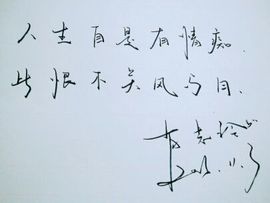 人生自是有情痴.
此恨不关风与月.